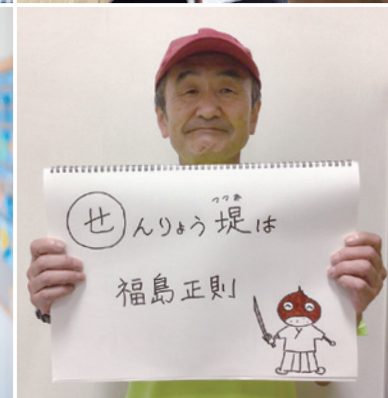 せんりょう堤は
つつみ
福島正則